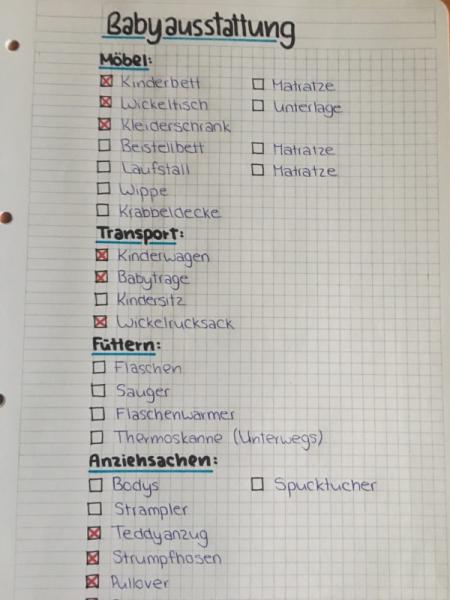 Babyausstattung
Möbel:
☒ Kinderbett ☐ Matratze
☒ Wickeltisch ☐ Unterlage
☒ Kleiderschrank
☐ Beistellbett ☐ Matratze
☐ Laufstall ☐ Matratze
☐ Wippe
☐ Krabbeldecke
Transport:
☒ Kinderwagen
☒ Babytrage
☐ Kindersitz
☒ Wickelrucksack
Füttern:
☐ Flaschen
☐ Sauger
☐ Flaschenwärmer
☐ Thermoskanne (Unterwegs)
Anziehsachen:
☐ Bodys ☐ Spucktücher
☐ Strampler
☒ Teddyanzug
☒ Strumpfhosen
☒ Pullover